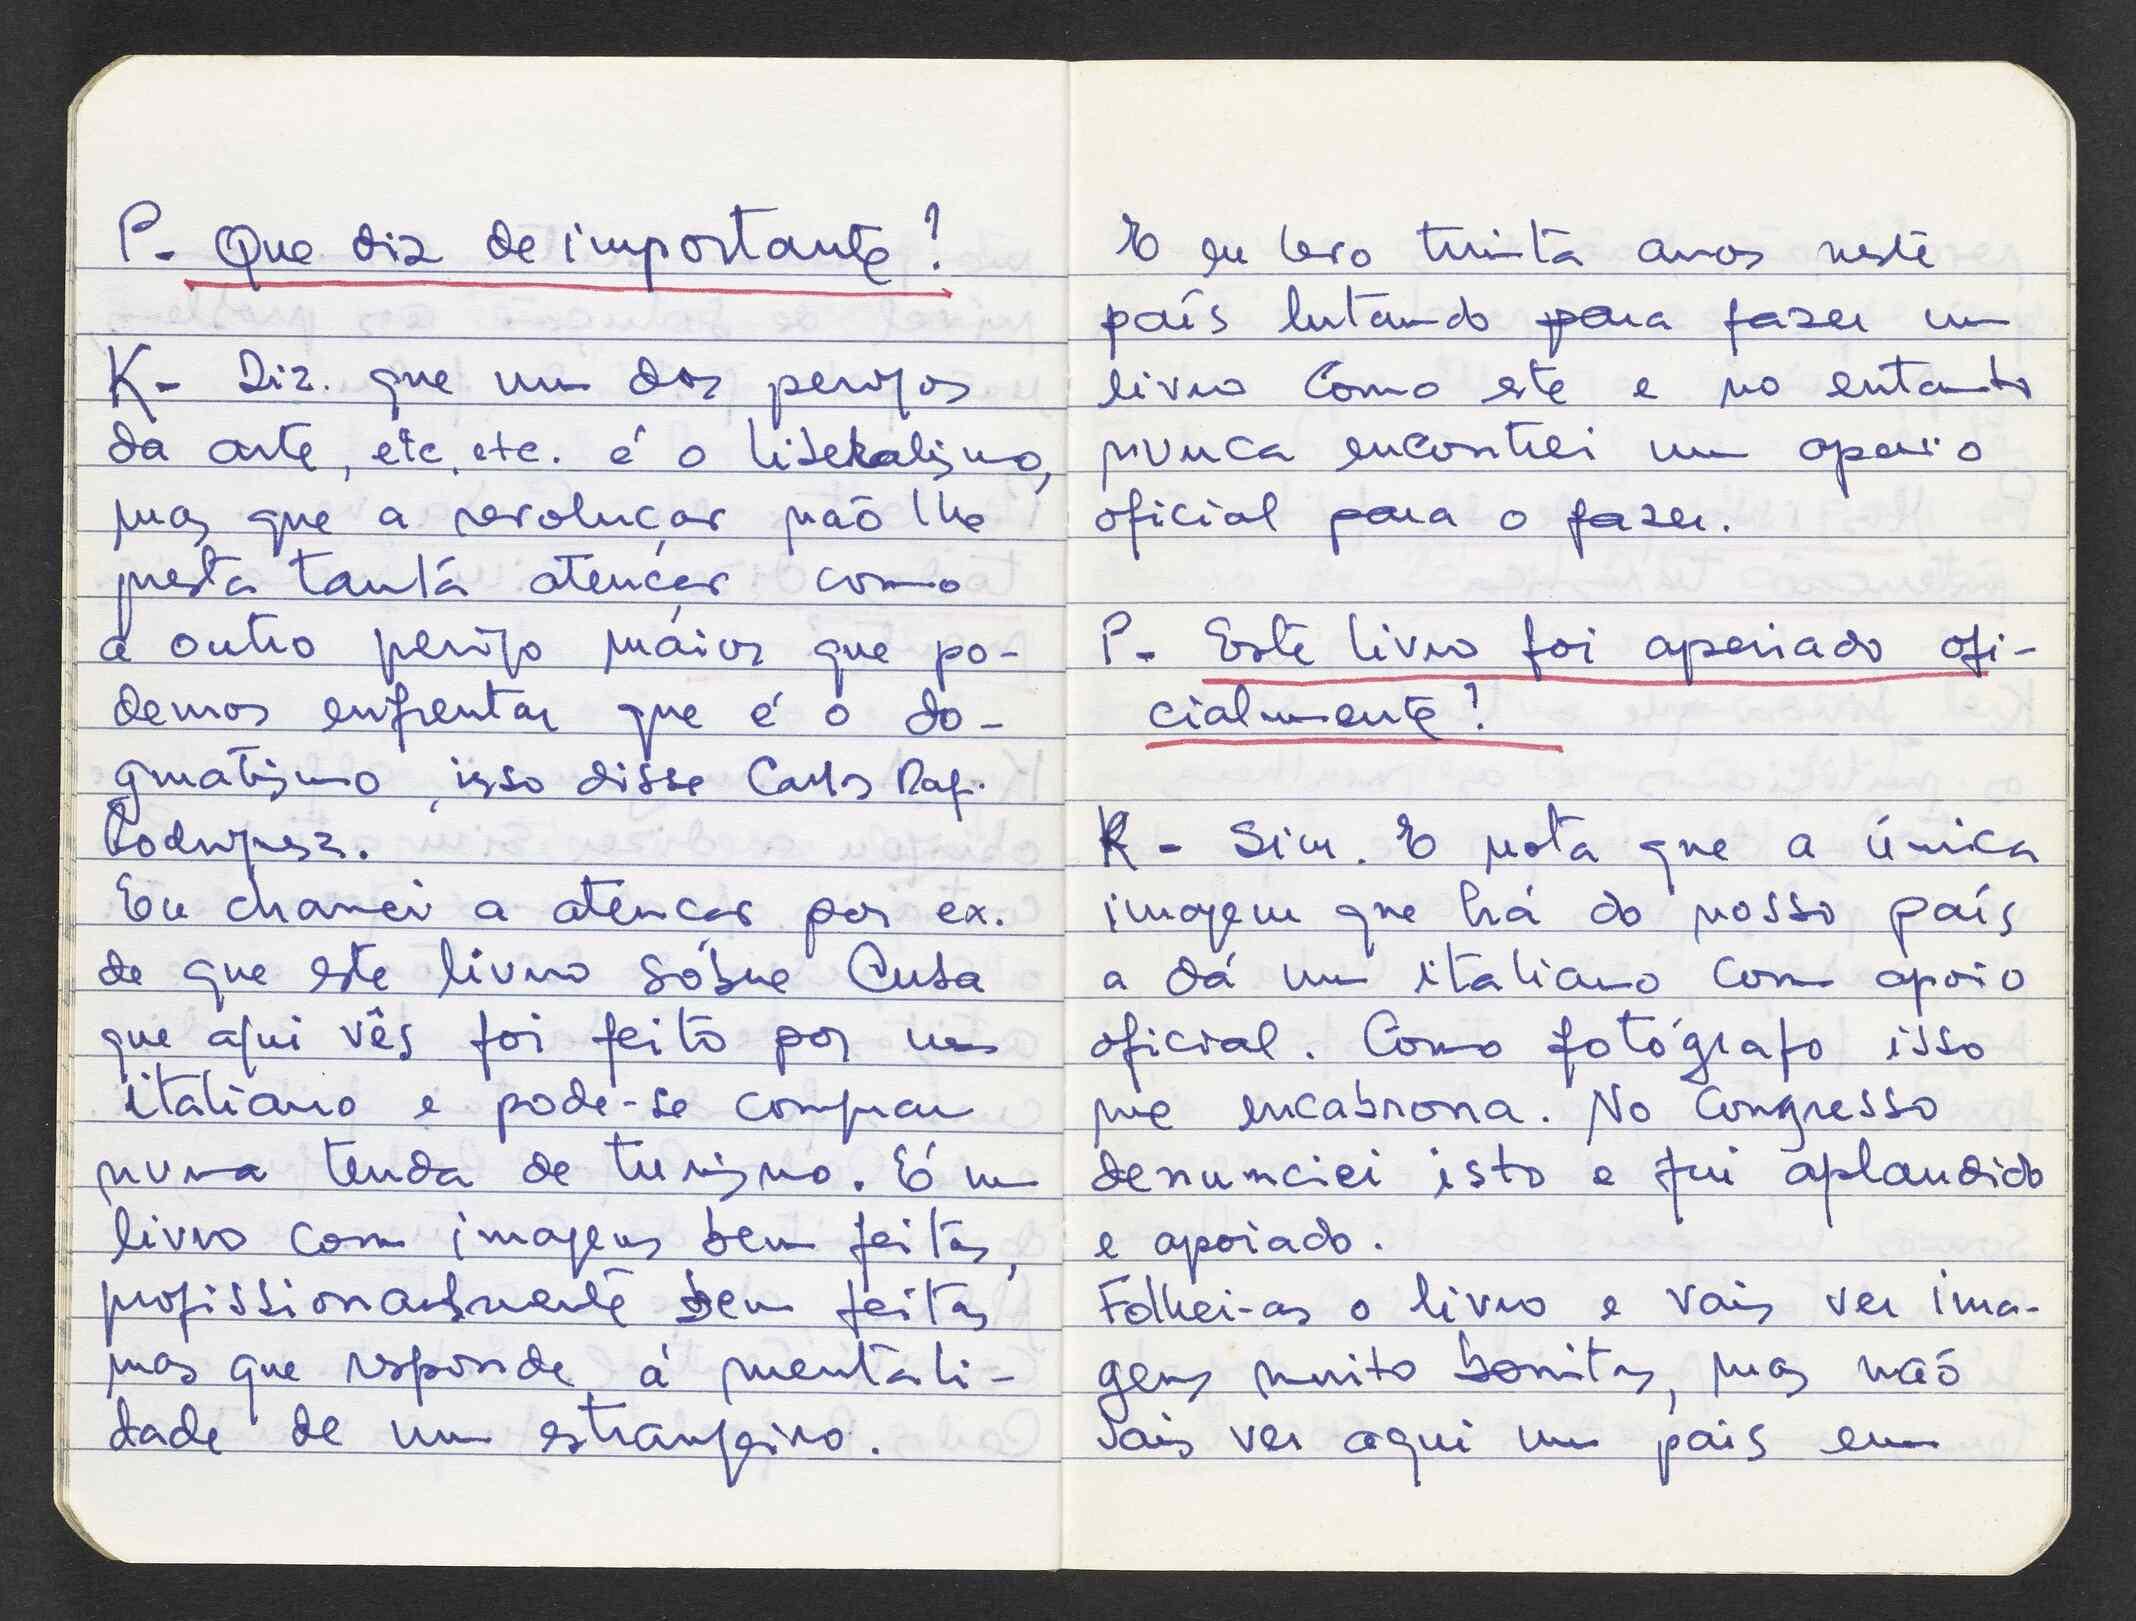 P- Que diz de importante?
K- Diz. que um dos perigos
da arte, etc. etc. é o liberalismo,
mas que a revoluçao não lhe
presta tanta atençao como
a outro perigo máior que po-
demos enfrentar que é o do-
gmatismo, isso disse Carlos Raf.
Rodriguez.
Eu chamei a atençao por ex.
de que este livro sobre Cuba
que aqui vês foi feito por um
italiano e pode-se comprar
numa tenda de turismo. É um
livro com imagens bem feitas,
profissionalmente bem feitas
mas que responde á mentali-
dade de um estrangeiro.
E eu levo trinta anos neste
país lutando para fazer um
livro como este e no entanto
nunca encontrei um apoio
oficial para o fazer.
P- Este livro foi apoiado ofi-
cialmente?
K- Sim. E nota que a única
imagem que há do nosso país
a dá um italiano com apoio
oficial. Como fotógrafo isso
me encabrona. No Congresso
denunciei isto e fui aplaudido
e apoiado.
Folhei-as o livro e vais ver ima-
gens muito bonitas, mas não
vais ver aqui um pais em